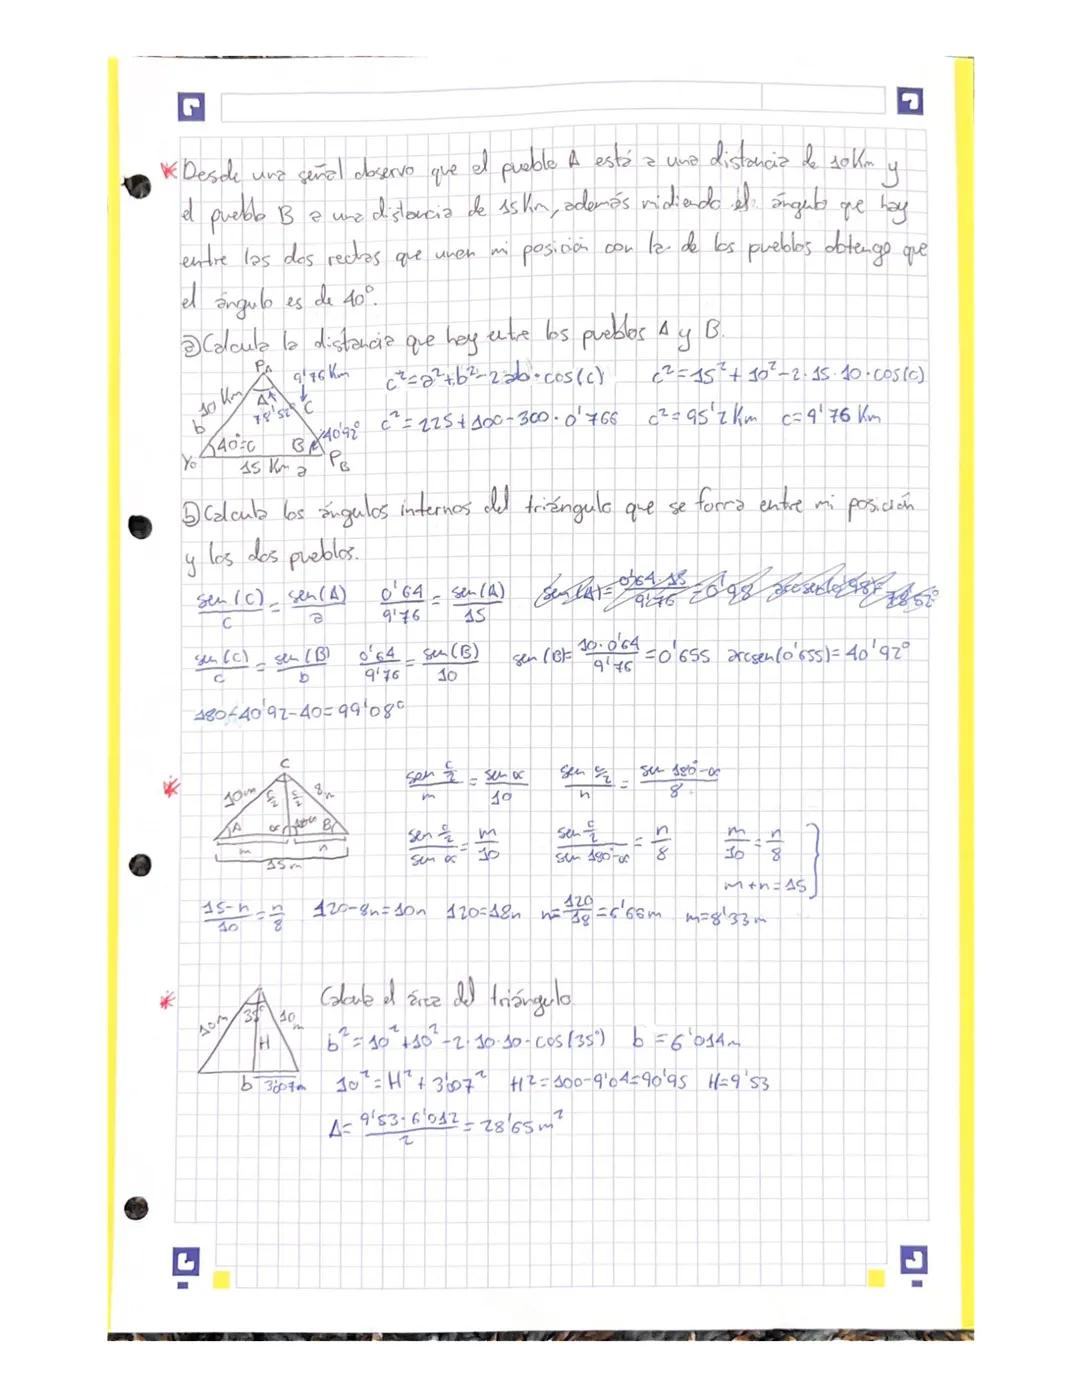 * Desde una señal observo que el pueblo A está a una distancia de 10 Km y
el pueblo B a una distancia de 15 Km, además midiendo el ángulo que hay
entre las dos rectas que unen mi posición con la de los pueblos obtengo que
el ángulo es de 40°.
a) Calcula la distancia que hay entre los pueblos A y B.
PA 9'76 Km c²=a²+b²-2ab·cos(c) c²=15²+10²-2·15·10·cos(c)
10 Km A 78'52° C
b 40'92° c²=225+100-300·0'766 c²=95'2 Km c=9'76 Km
40°=C B
Yo 15 Km a PB
b) Calcula los ángulos internos del triángulo que se forma entre mi posición
y los dos pueblos.
sen(C)/c = sen(A)/a 0'64/9'76 = sen(A)/15 sen(A)= 0'64·15/9'76 =0'98 arcsen(0'98)= 78'52°
sen(C)/c = sen(B)/b 0'64/9'76 = sen(B)/10 sen(B)= 10·0'64/9'76 =0'655 arcsen(0'655)=40'92°
180-40'92-40=99'08°
* C
10m c/2 c/2 8m sen c/2 / m = sen α / 10 sen c/2 / n = sen 180°-α / 8
A α 180-α B sen c/2 / sen α = m/10 sen c/2 / sen 180-α = n/8 m/10 = n/8
m n m+n=15
15m
15-n/10 = n/8 120-8n=10n 120=18n n= 120/18 =6'66m m=8'33m
* Calcula el área del triángulo
10m 35° 10 m b²=10²+10²-2·10·10·cos(35°) b=6'014m
H
b 3'07m 10²=H²+3'007² H²=100-9'04=90'95 H=9'53
A= 9'53·6'012/2 =28'65m²